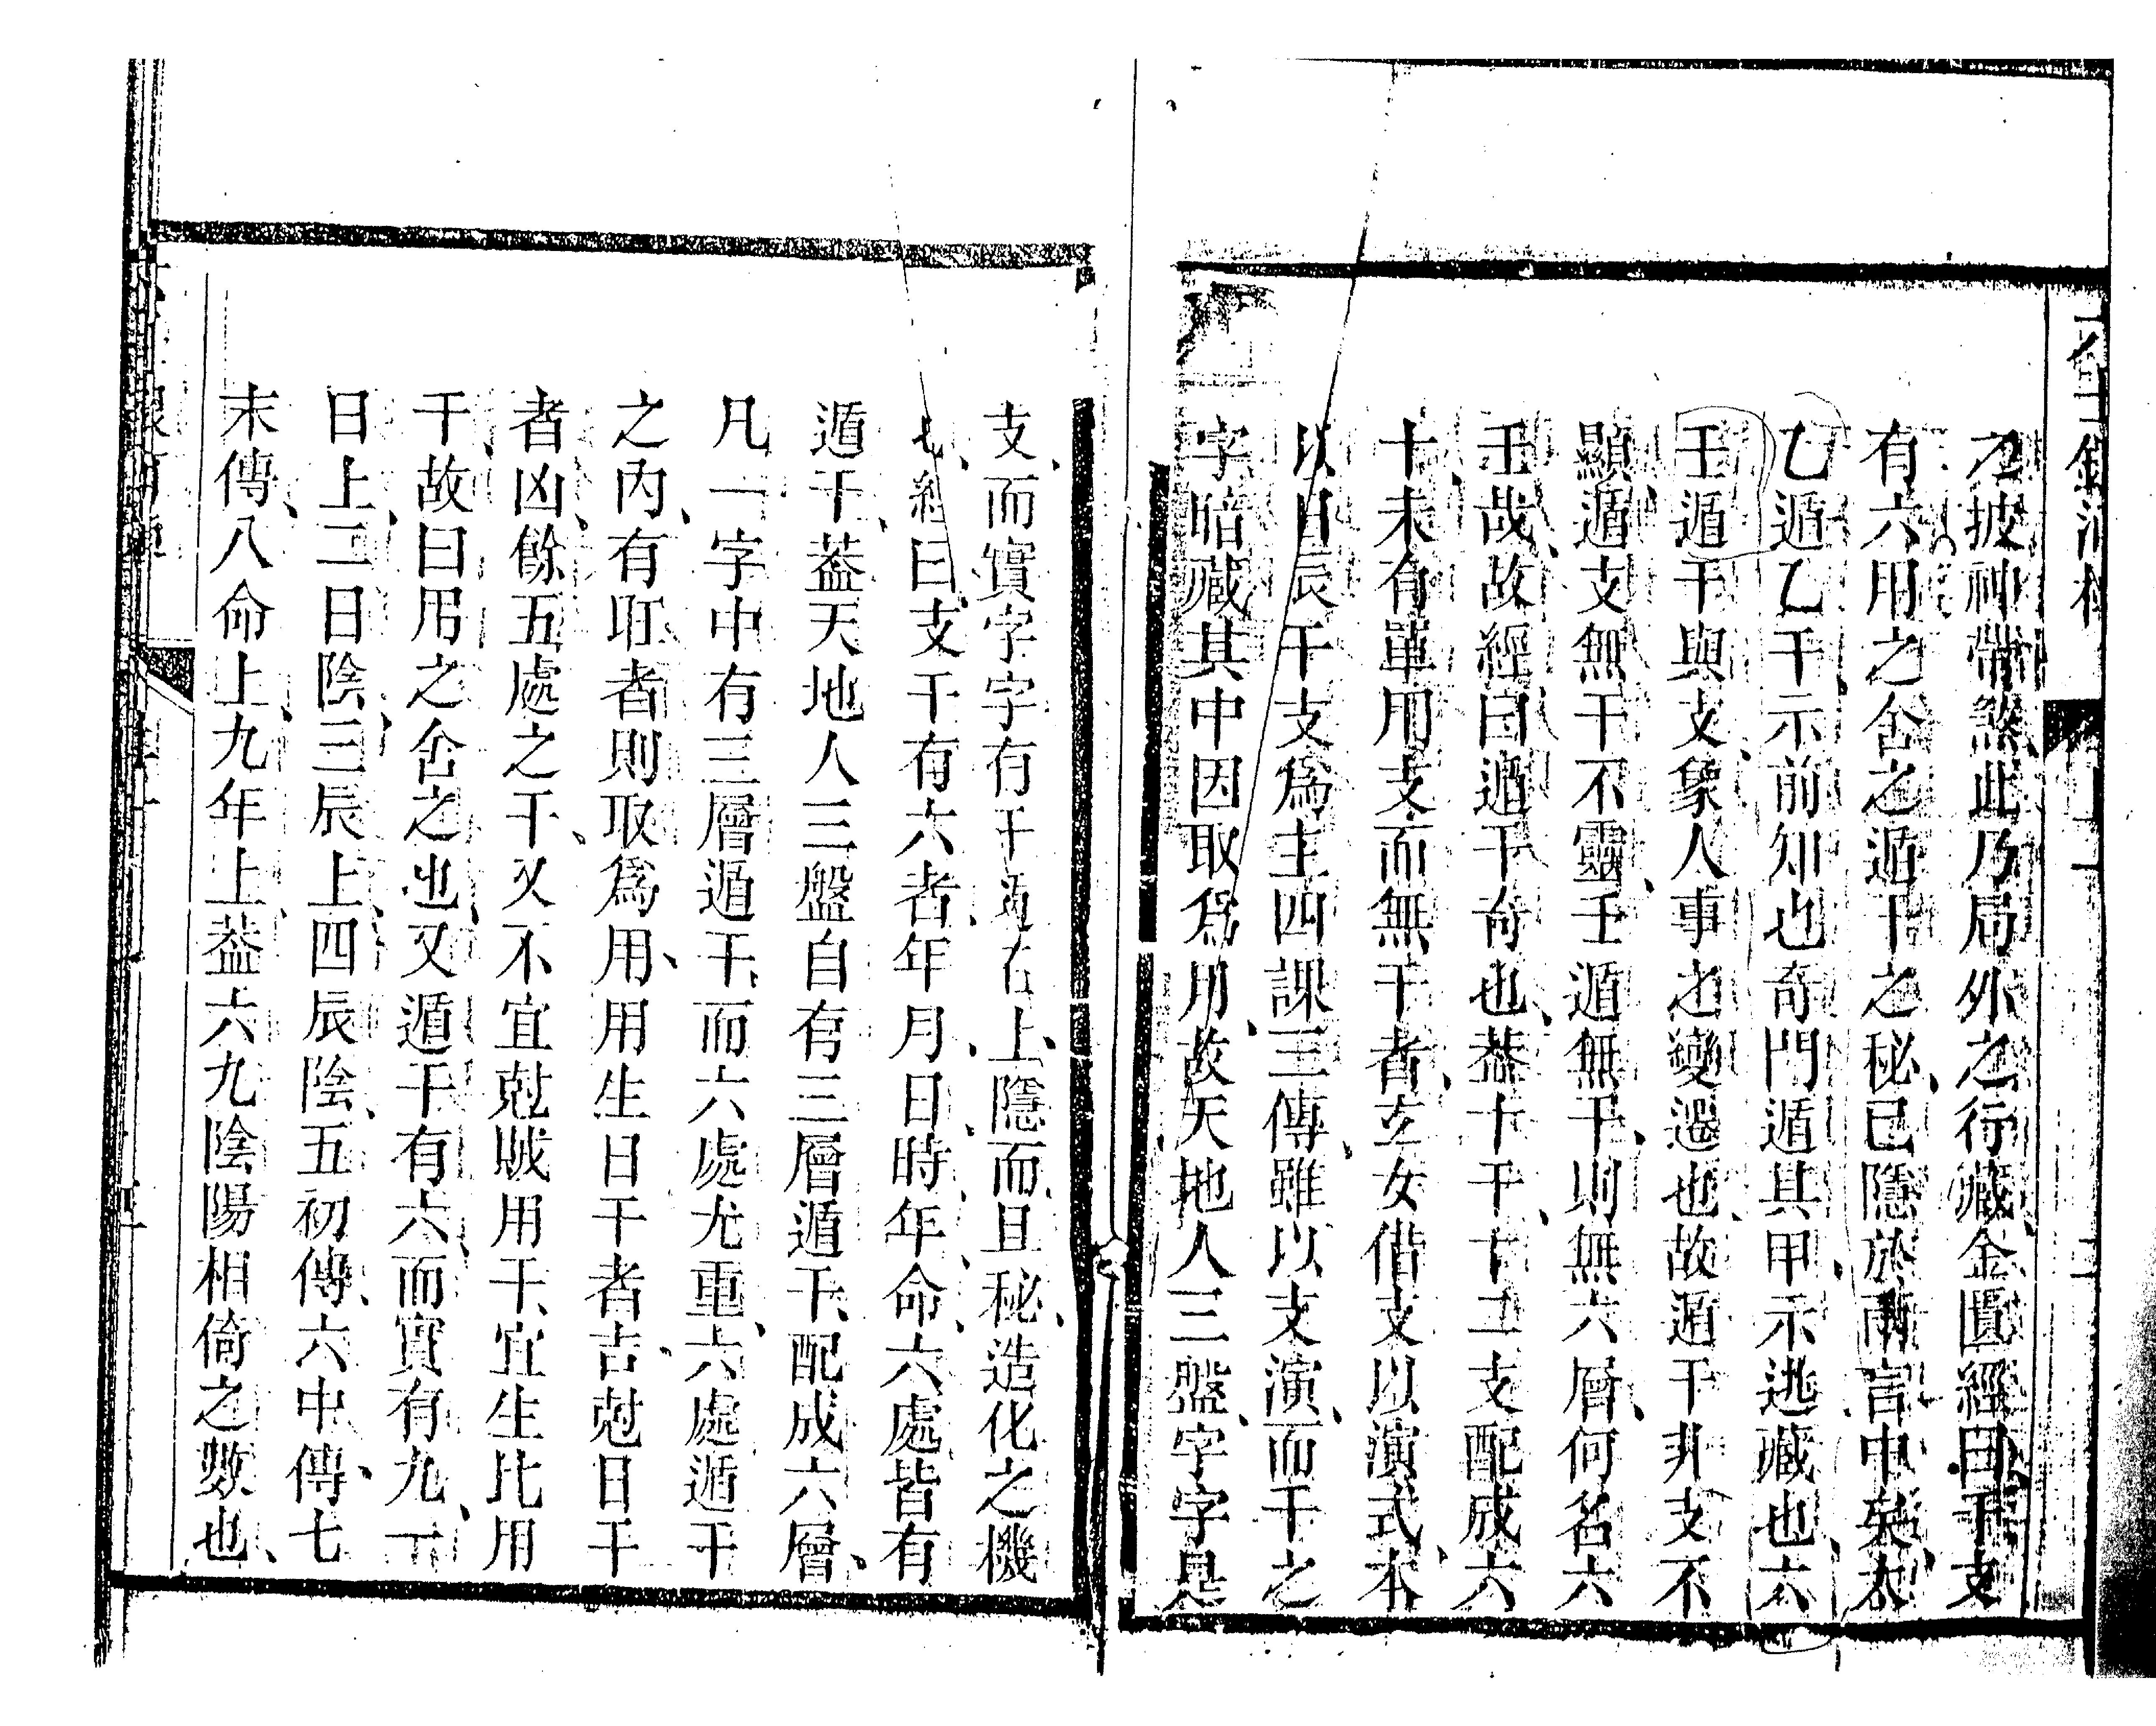 披神帶煞此乃局外之行藏金匱經曰干支
有六用之舍之遁干之秘已隱於兩言中矣太
乙遁乙干示前知也奇門遁其甲示逃藏也六
壬遁干與支象人事之變遷也故遁干非支不
顯遁支無干不靈壬遁無干則無六層何名六
壬哉故經曰遁干奇也葢十干十二支配成六
十未有單用支而無干者玄女借支以演式本
以日辰干支爲主四課三傳雖以支演而干之
字暗藏其中因取爲用故天地人三盤字字是
支而實字字有干遁在上隱而且秘造化之機
也經曰支干有六者年月日時年命六處皆有
遁干葢天地人三盤自有三層遁干配成六層
凡一字中有三層遁干而六處尤重六處遁干
之內有取者則取爲用用生日干者吉尅日干
者凶餘五處之干又不宜尅賊用干宜生比用
干故曰用之舍之也又遁干有六而實有九一
日上二日陰三辰上四辰陰五初傳六中傳七
末傳八命上九年上葢六九陰陽相倚之數也